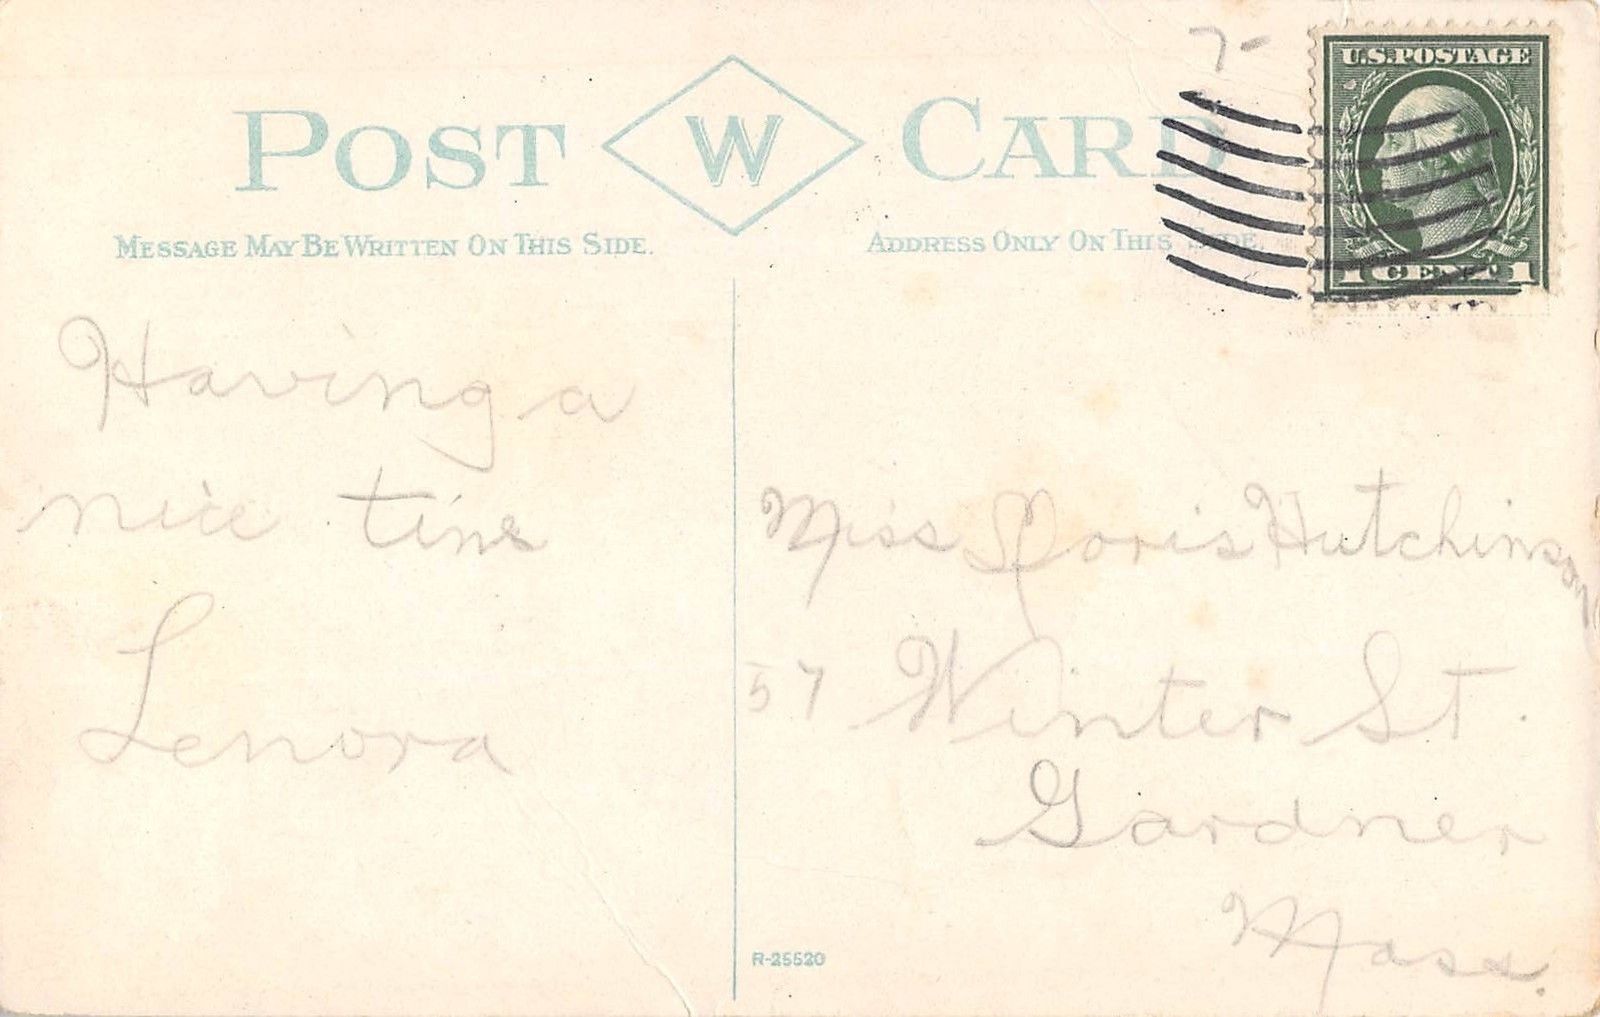 7-
U.S.POSTAGE
POST W CARD
MESSAGE MAY BE WRITTEN ON THIS SIDE.
ADDRESS ONLY ON THIS SIDE.
1 CENT 1
Having a
nice time
Lenora
Miss Doris Hutchinson
57 Winter St.
Gardner
Mass.
R-25520